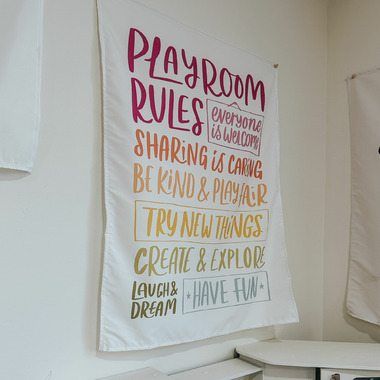 PLAYROOM
RULES everyone
is welcome
SHARING iS CARiNG
BE KiND & PLAY FAiR
TRY NEW THiNGS
CREATE & EXPLORE
LAUGH &
DREAM * HAVE FUN *